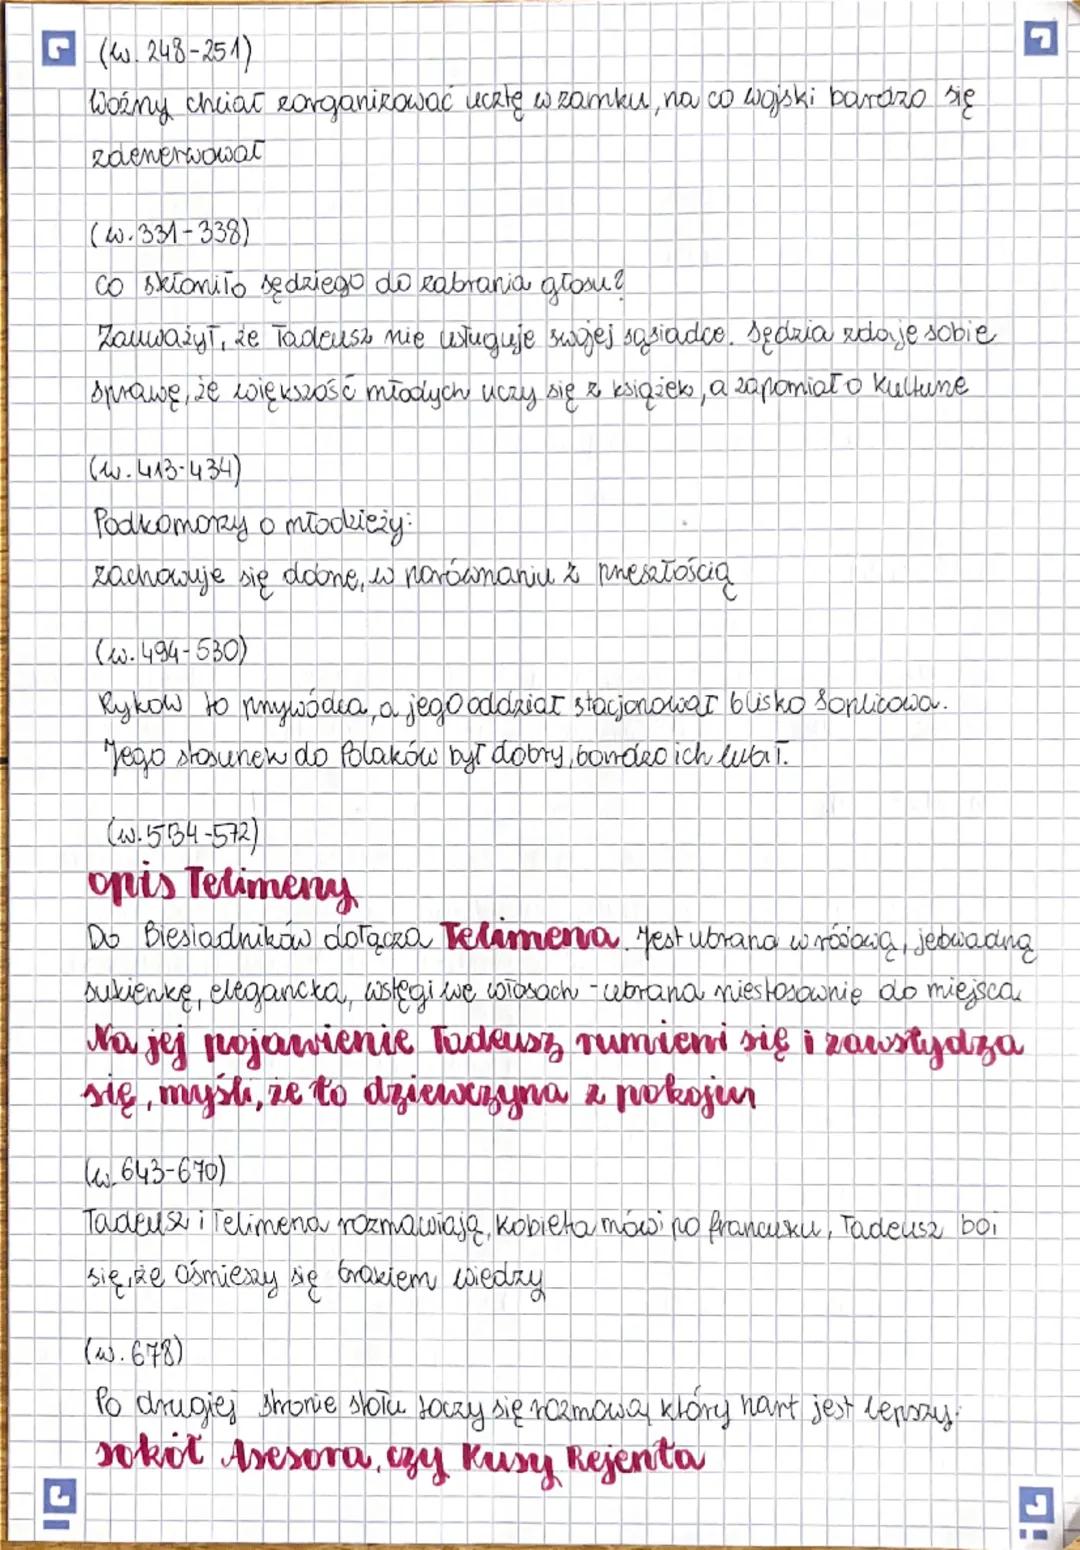 (w. 248-251)
Woźny chciał zorganizować ucztę w zamku, na co wojski bardzo się
zdenerwował
(w. 331-338)
co skłoniło sędziego do zabrania głosu?
Zauważył, że Tadeusz nie usługuje swojej sąsiadce. Sędzia zdaje sobie
sprawę, że większość młodych uczy się z książek, a zapomiał o kulturze
(w. 413-434)
Podkomorzy o młodzieży:
zachowuje się dobrze, w porównaniu z przeszłością
(w. 494-530)
Rykow to przywódca, a jego oddział stacjonował blisko Soplicowa.
Jego stosunek do Polaków był dobry, bardzo ich lubił.
(w. 534-572)
opis Telimeny
Do Biesiadników dołącza Telimena. Jest ubrana w różową, jebwadną
sukienkę, elegancka, wstęgi we włosach - ubrana niestosownie do miejsca
Na jej pojawienie Tadeusz rumieni się i zawstydza
się, myśli, że to dziewczyna z pokoju
(w. 643-670)
Tadeusz i Telimena rozmawiają, kobieta mówi po francusku, Tadeusz boi
się, że ośmieszy się brakiem wiedzy
(w. 678)
Po drugiej stronie stołu toczy się rozmowa, który hart jest lepszy:
sokół Asesora, czy Kusy Rejenta